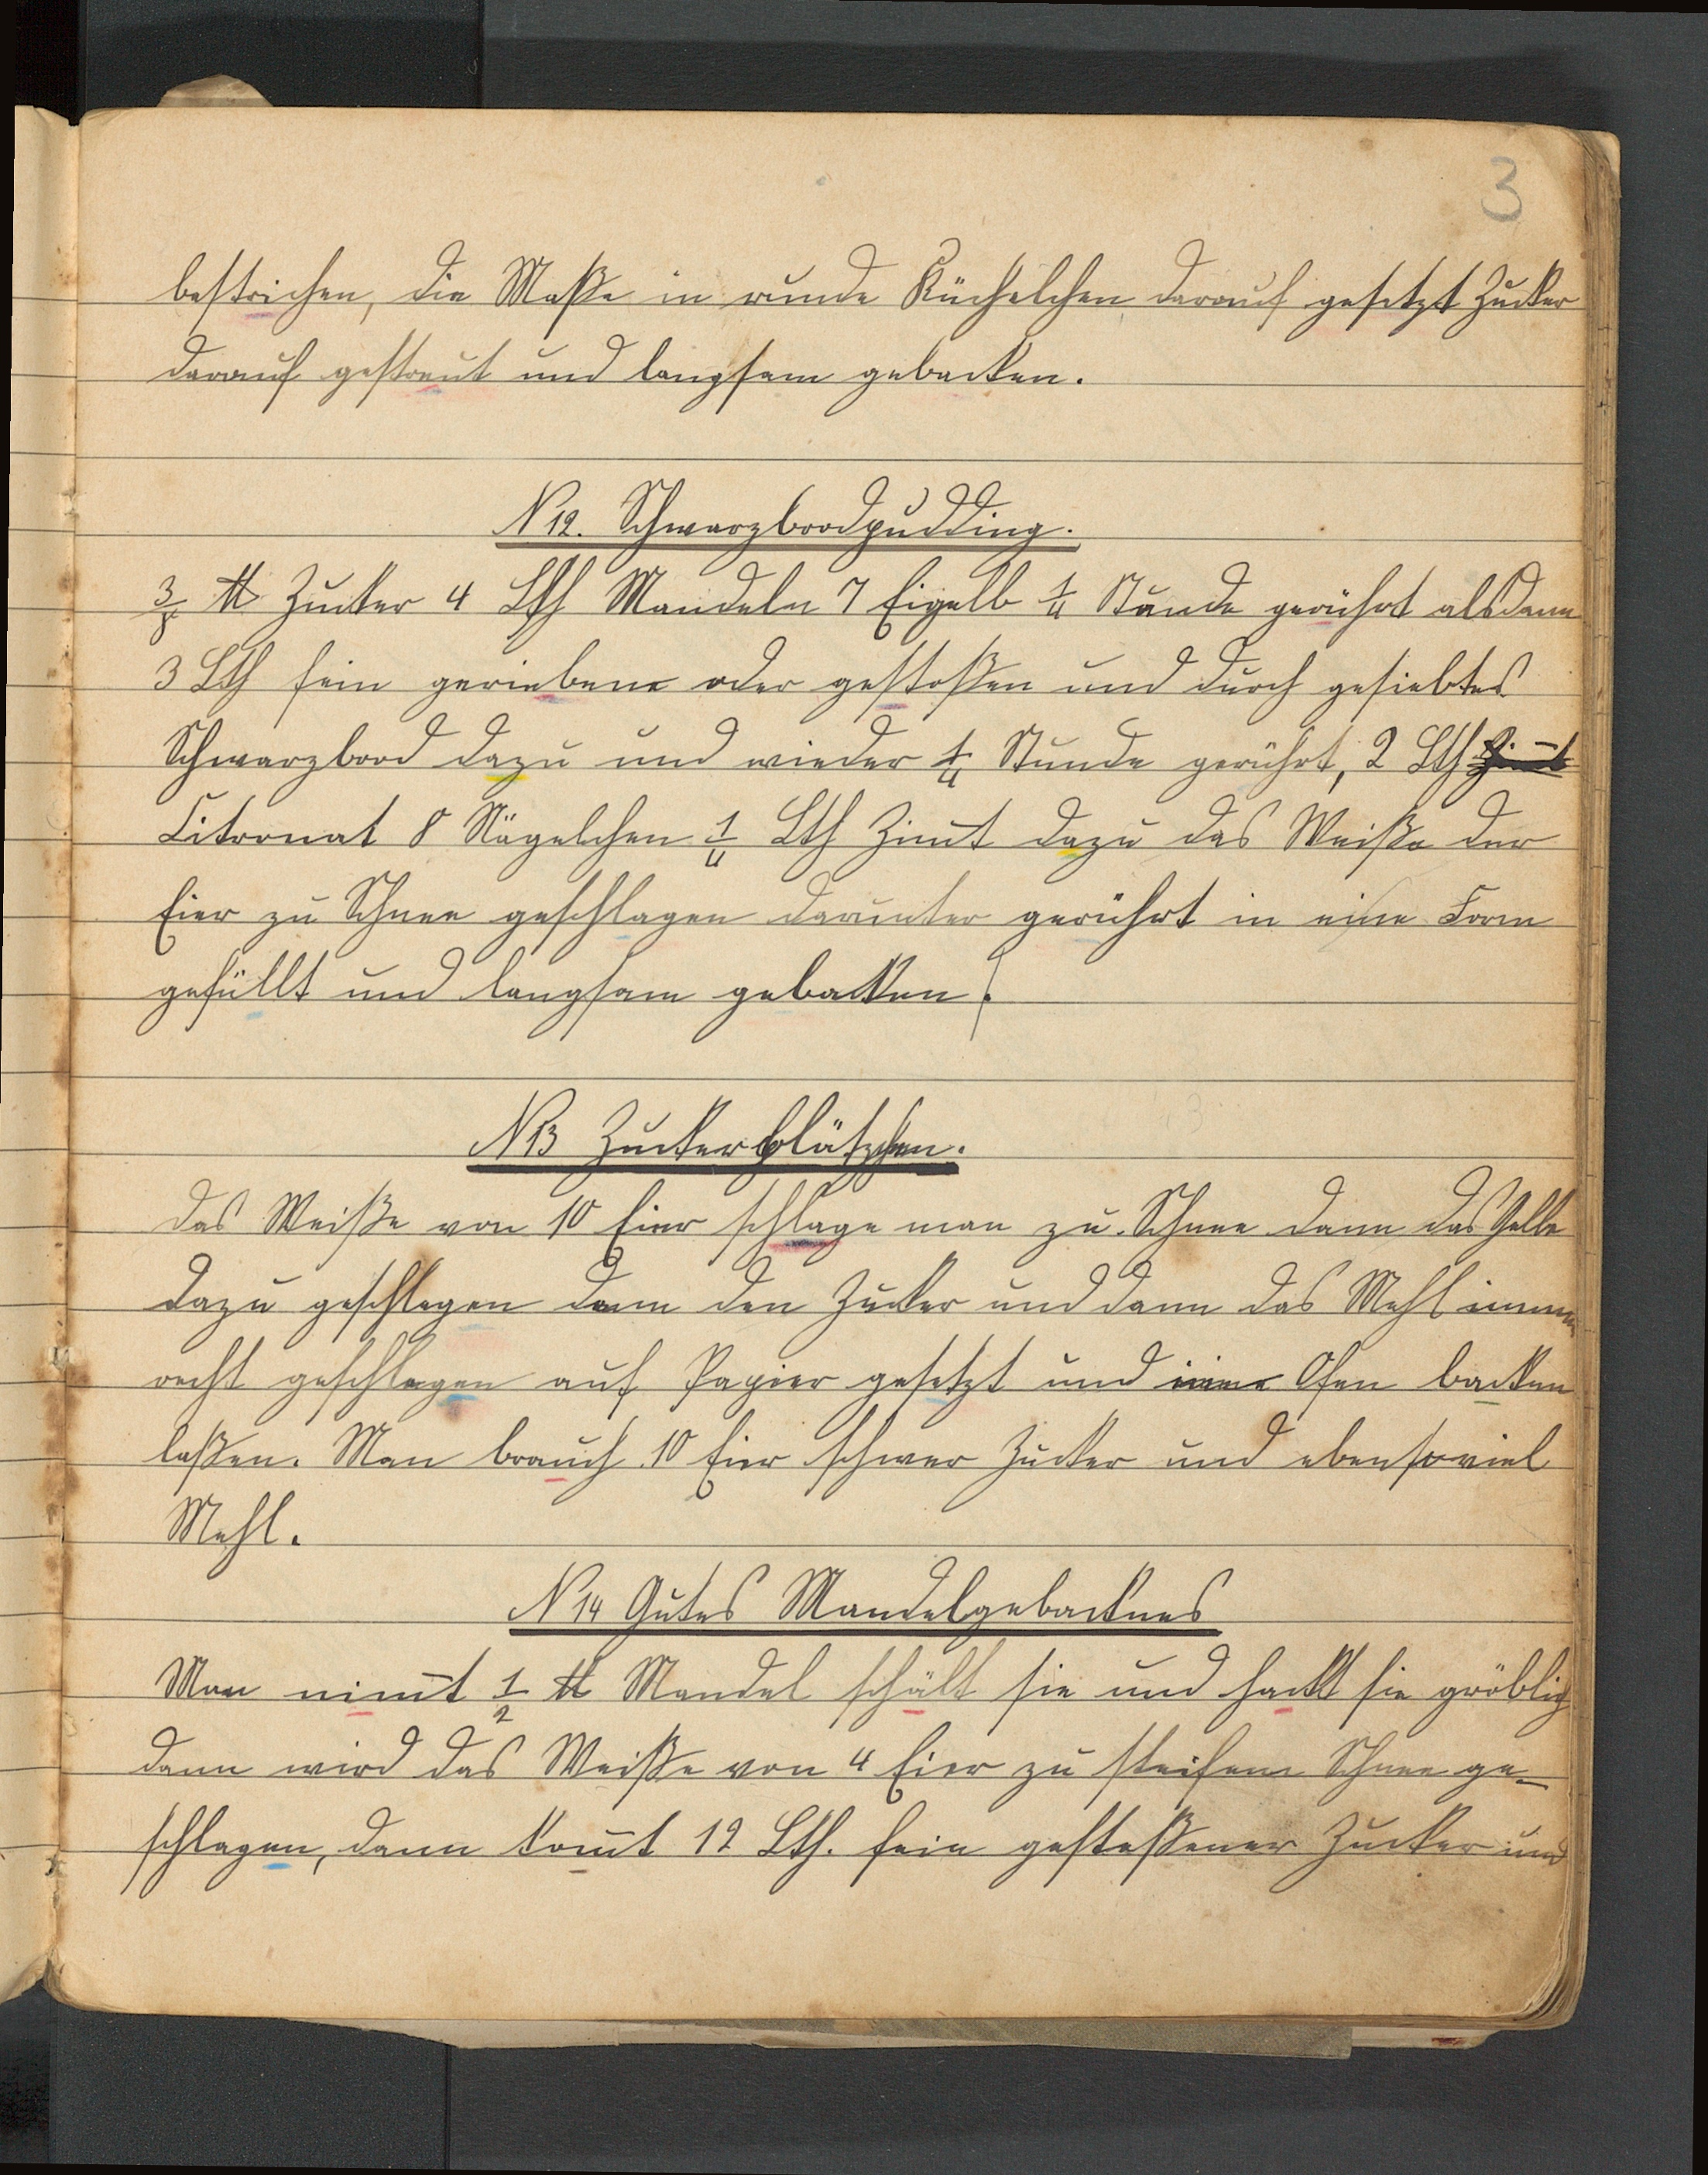 3
bestrichen, die Maße in runde Küchelchen darauf gesetzt Zucker
darauf gestreut und langsam gebacken.
N 12. Schwarzbrodpudding.
3/8 ℔ Zucker 4 Lth Mandeln 7 Eigelb 1/4 Stunde gerührt alsdann
3 Lth fein geriebene oder gestoßen und durch gesiebtes
Schwarzbrod dazu und wieder 1/4 Stunde gerührt, 2 Lth Zim̄t
Citronat 8 Nägelchen 1/4 Lth Zim̄t dazu das Weiße der
Eier zu Schnee geschlagen darunter gerührt in eine Form
gefüllt und langsam gebacken!
N 13 Zuckerplätzchen.
Das Weiße von 10 Eier schlage man zu Schnee dann das Gelbe
dazu geschlagen dann den Zucker und dann das Mehl immer
recht geschlagen auf Papier gesetzt und Ofen backen
laßen. Man brauch 10 Eier schwer Zucker und ebensoviel
Mehl.
N 14 Gutes Mandelgebacknes
Man nim̄t 1/2 ℔ Mandel schält sie und hackt sie gröblich
dann wird das Weiße von 4 Eier zu steifem Schnee ge-
schlagen, dann kom̄t 12 Lth. fein gestoßener Zucker und